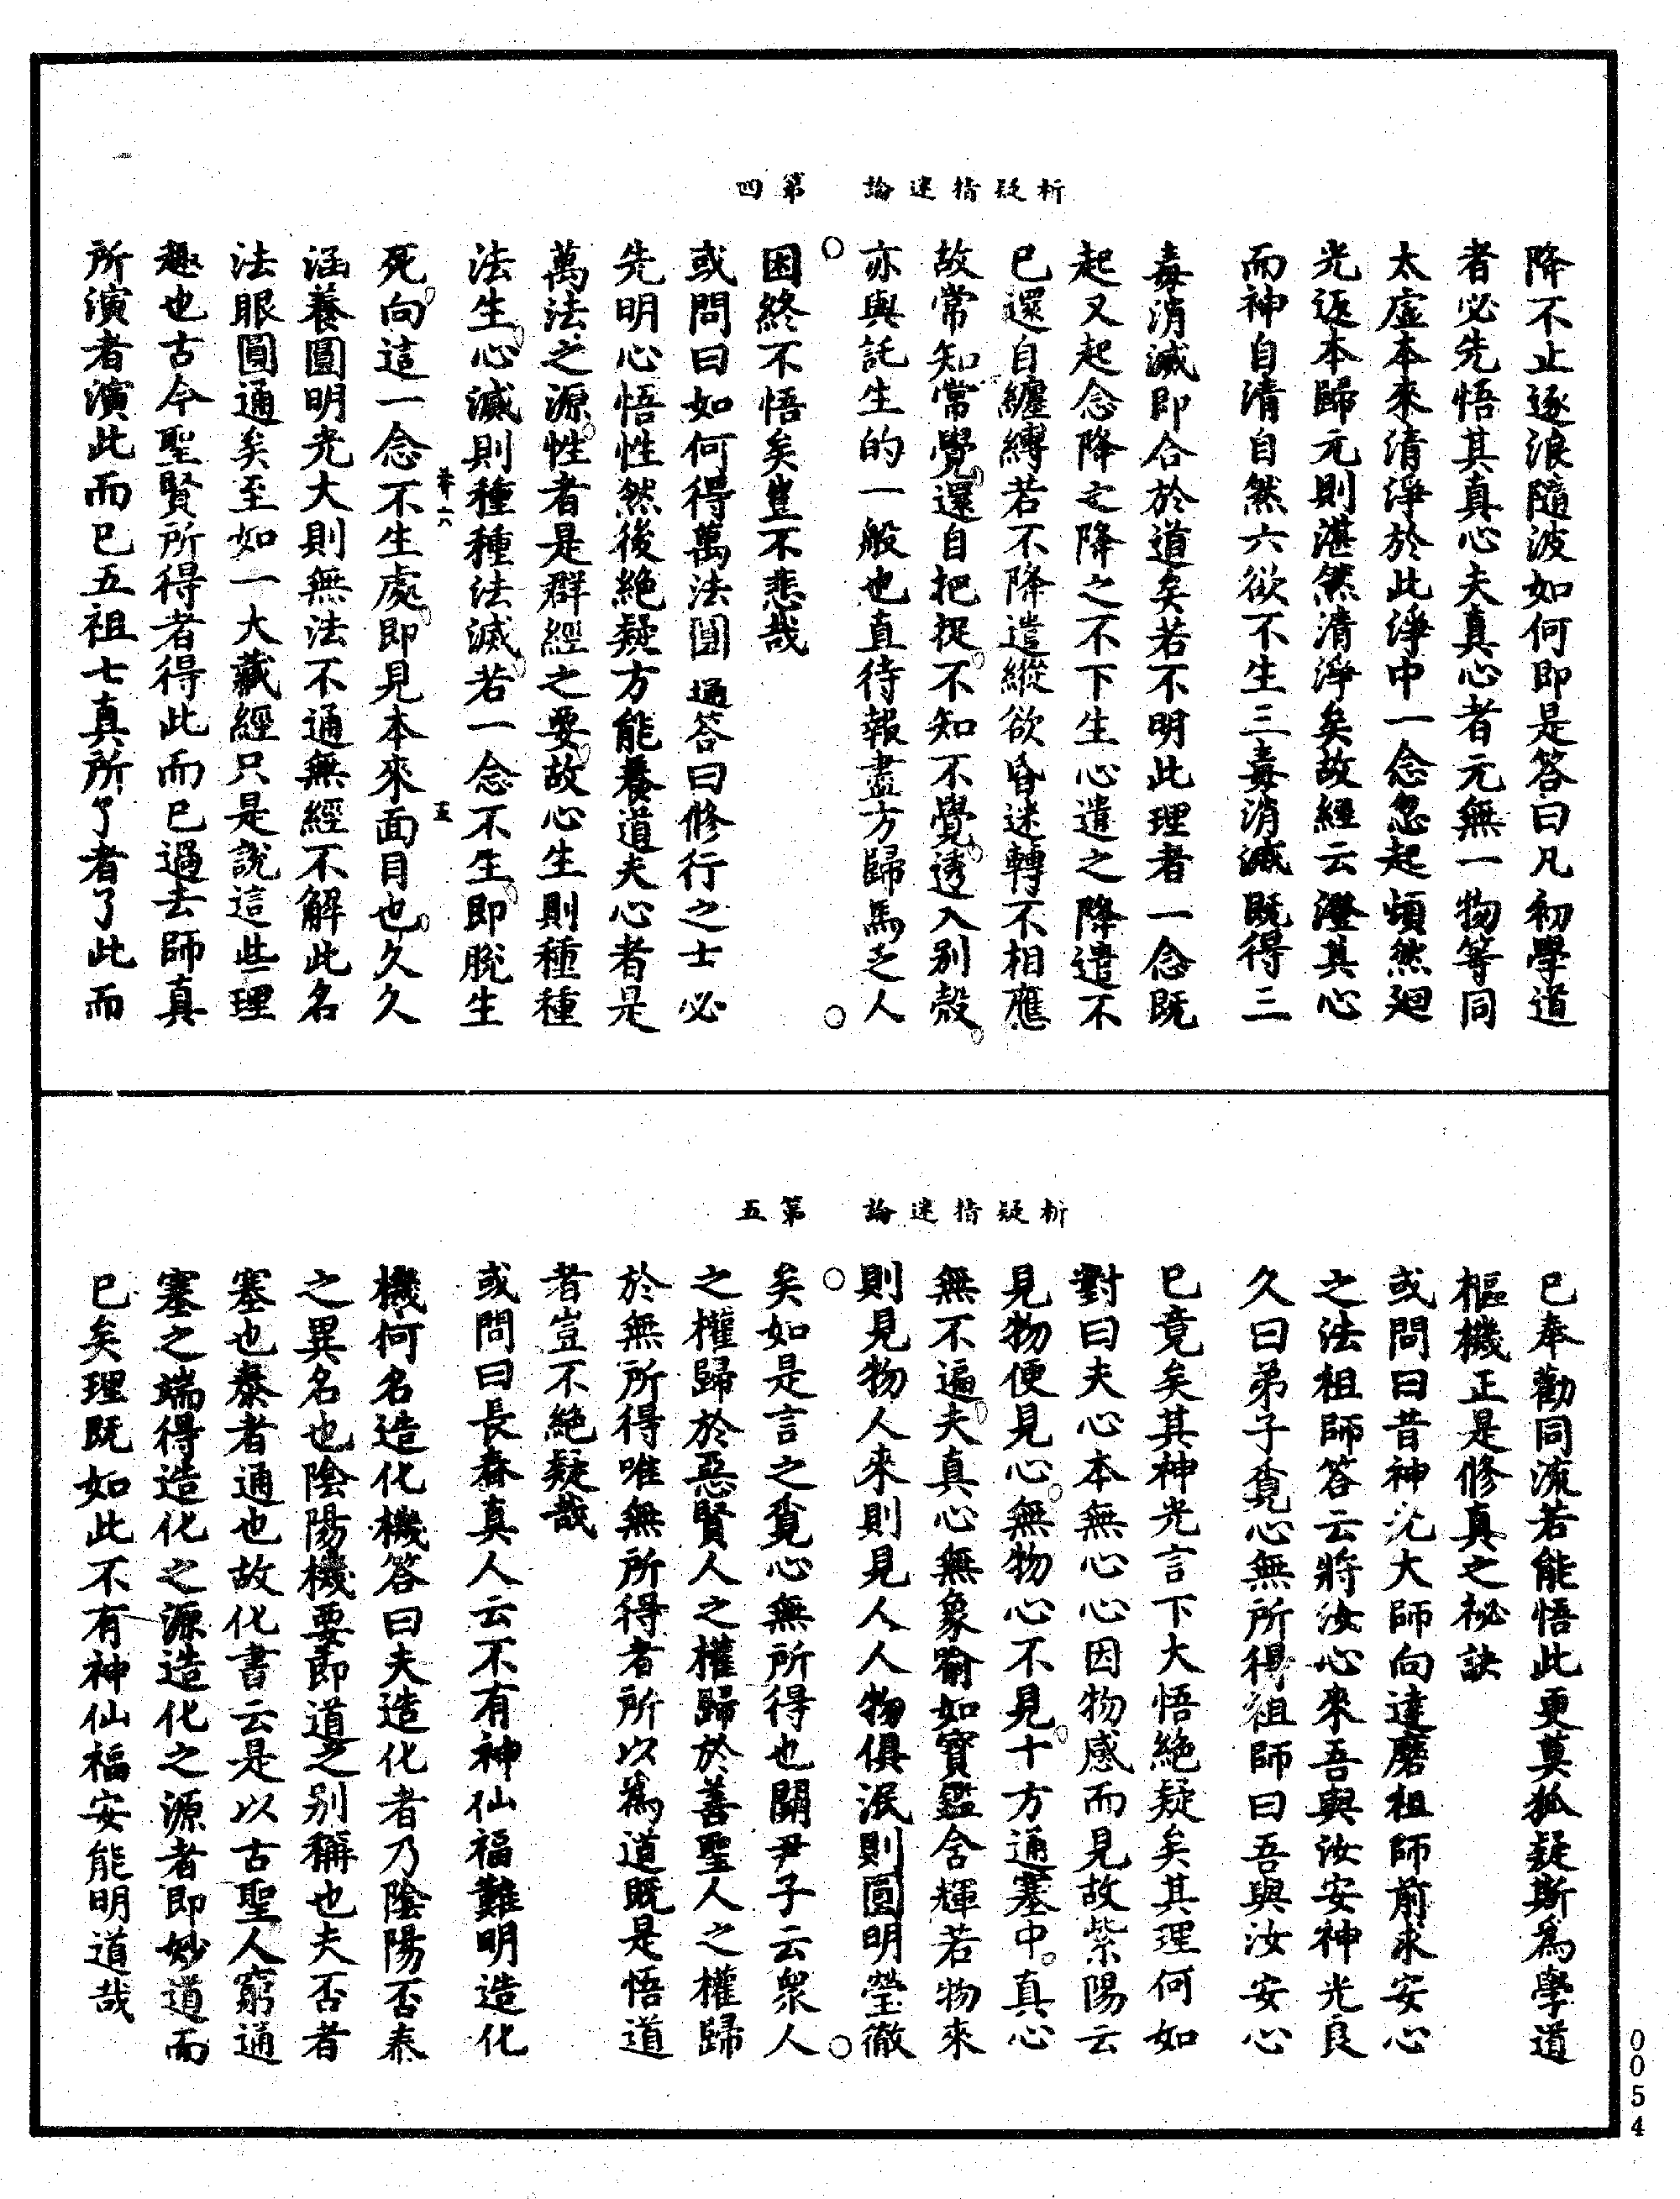 析疑指迷論　第四
降不止逐浪隨波如何即是答曰凡初學道
者必先悟其真心夫真心者元無一物等同
太虛本來清淨於此淨中一念忽起頓然廻
光返本歸元則湛然清淨矣故經云澄其心
而神自清自然六欲不生三毒消滅既得三
毒消滅即合於道矣若不明此理者一念既
起又起念降之降之不下生心遣之降遣不
已還自纏縛若不降遣縱欲昏迷轉不相應
故常知常覺還自把捉不知不覺透入別殼
亦與託生的一般也直待報盡方歸馬乏人
困終不悟矣豈不悲哉
或問曰如何得萬法圓通答曰修行之士必
先明心悟性然後絕疑方能養道夫心者是
萬法之源性者是群經之要故心生則種種
法生心滅則種種法滅若一念不生即脫生
死向這一念不生處即見本來面目也久久
涵養圓明光大則無法不通無經不解此名
法眼圓通矣至如一大藏經只是說這些理
趣也古今聖賢所得者得此而已過去師真
所演者演此而已五祖七真所了者了此而
析疑指迷論　第五
已奉勸同流若能悟此更莫狐疑斯為學道
樞機正是修真之祕訣
或問曰昔神光大師向達磨祖師前求安心
之法祖師答云將汝心來吾與汝安神光良
久曰弟子覔心無所得祖師曰吾與汝安心
已竟矣其神光言下大悟絕疑矣其理何如
對曰夫心本無心心因物感而見故紫陽云
見物便見心無物心不見十方通塞中真心
無不遍夫真心無象喻如寶鑑含輝若物來
則見物人來則見人人物俱泯則圓明瑩徹
矣如是言之覔心無所得也關尹子云衆人
之權歸於惡賢人之權歸於善聖人之權歸
於無所得唯無所得者所以為道既是悟道
者豈不絕疑哉
或問曰長春真人云不有神仙福難明造化
機何名造化機答曰夫造化者乃陰陽否泰
之異名也陰陽機要即道之別稱也夫否者
塞也泰者通也故化書云是以古聖人窮通
塞之端得造化之源造化之源者即妙道而
已矣理既如此不有神仙福安能明道哉
0054